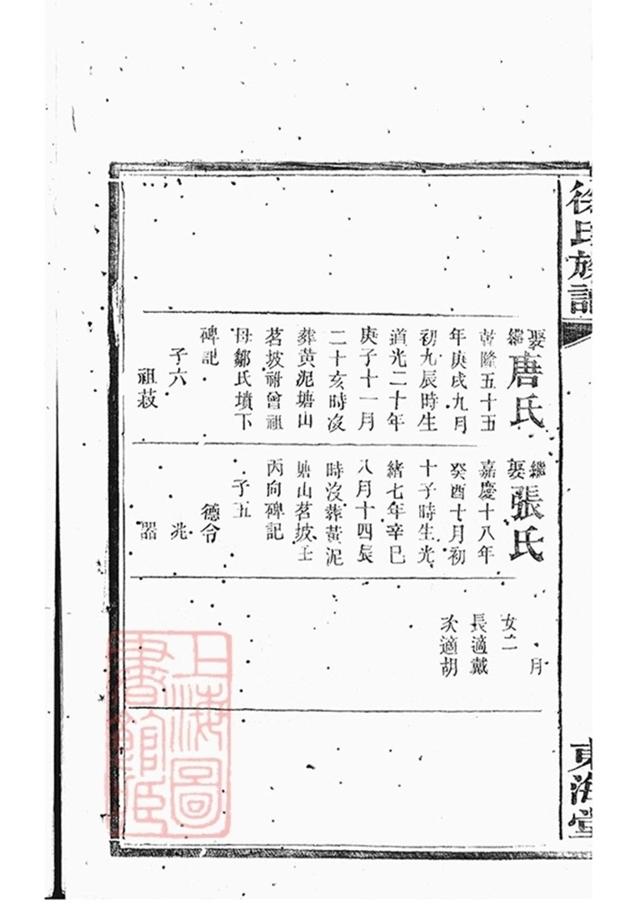 徐氏族譜
繼娶唐氏
乾隆五十五
年庚戌九月
初九辰時生
道光二十年
庚子十一月
二十亥時没
葬黃泥塘山
茗坡祔曾祖
母鄒氏墳下
碑記
子六
祖
繼娶張氏
嘉慶十八年
癸酉十月初
十子時生光
緒七年辛巳
八月十四辰
時没葬黃泥
塘山茗坡壬
丙向碑記
子五
德令
兆
器
月
女二
長適戴
次適胡
東海堂
上海圖
書館藏